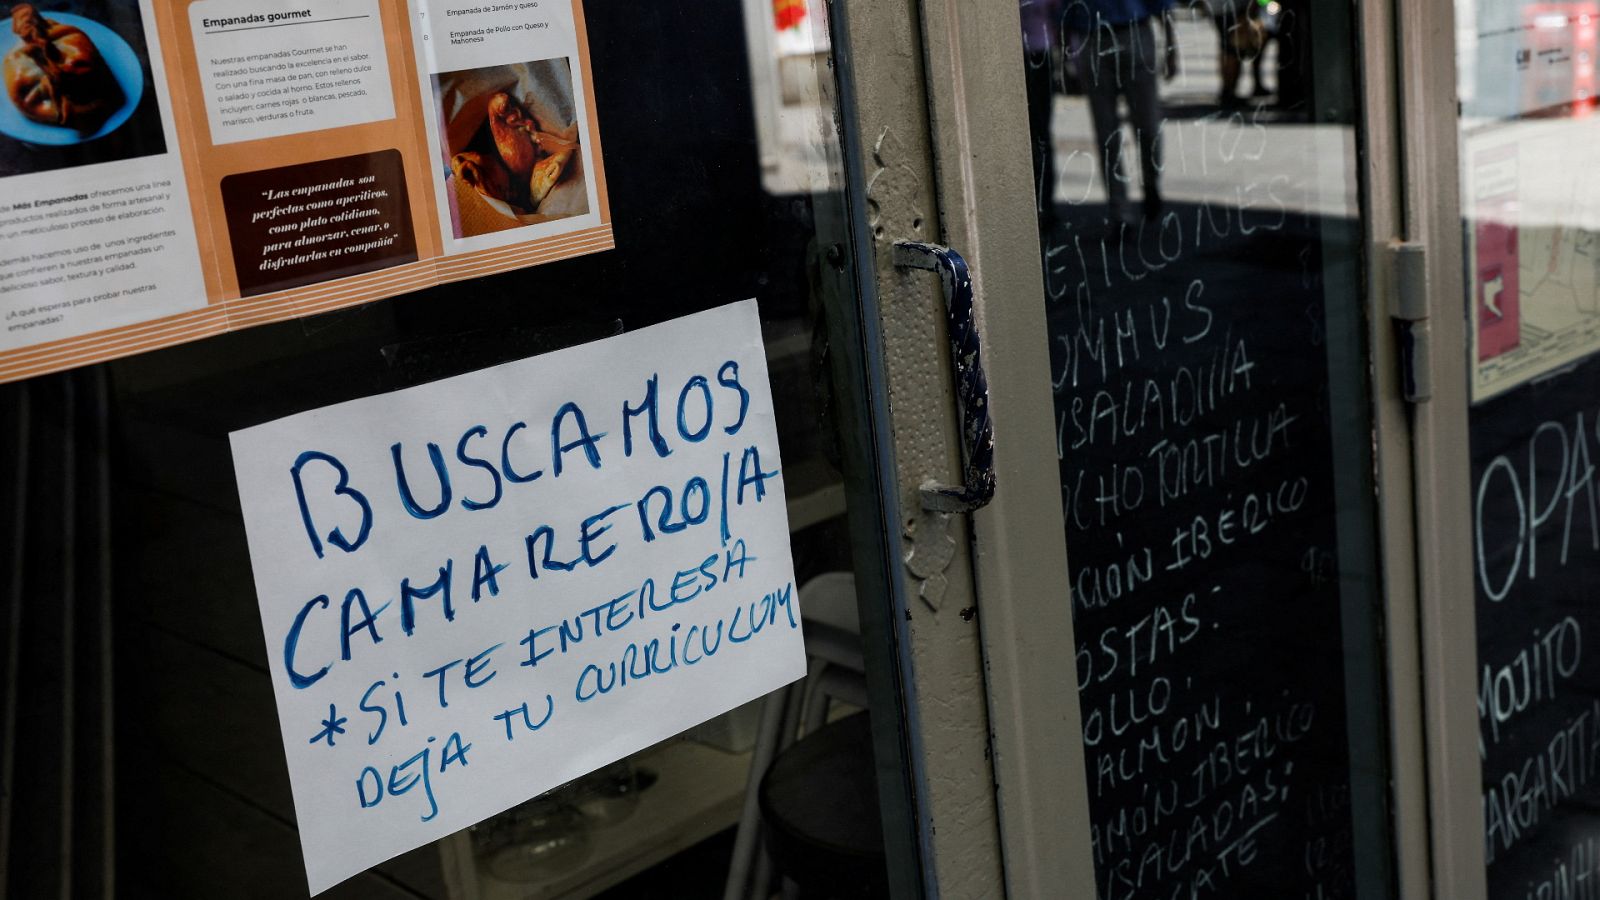 Empanadas gourmet
Nuestras empanadas Gourmet se han
realizado buscando la excelencia en el sabor.
Con una fina masa de pan, con relleno dulce
o salado y cocida al horno. Estos rellenos
incluyen: carnes rojas o blancas, pescado,
marisco, verduras o fruta.
“Las empanadas son
perfectas como aperitivos,
como plato cotidiano,
para almorzar, cenar, o
disfrutarlas en compañía”
7 Empanada de Jamón y queso
8 Empanada de Pollo con Queso y
Mahonesa
de Más Empanadas ofrecemos una línea
productos realizados de forma artesanal y
n un meticuloso proceso de elaboración.
demás hacemos uso de unos ingredientes
que confieren a nuestras empanadas un
delicioso sabor, textura y calidad.
¿A qué esperas para probar nuestras
empanadas?
BUSCAMOS
CAMARERO/A
*SI TE INTERESA
DEJA TU CURRICULUM
EJILLONES
UMMUS
SALADILLA
CHO TORTILLA
CIÓN IBÉRICO
OSTAS:
OLLO.
ALMÓN.
AMÓN IBÉRICO
SALADAS:
CATE
OPAS
MOJITO
MARGARITA